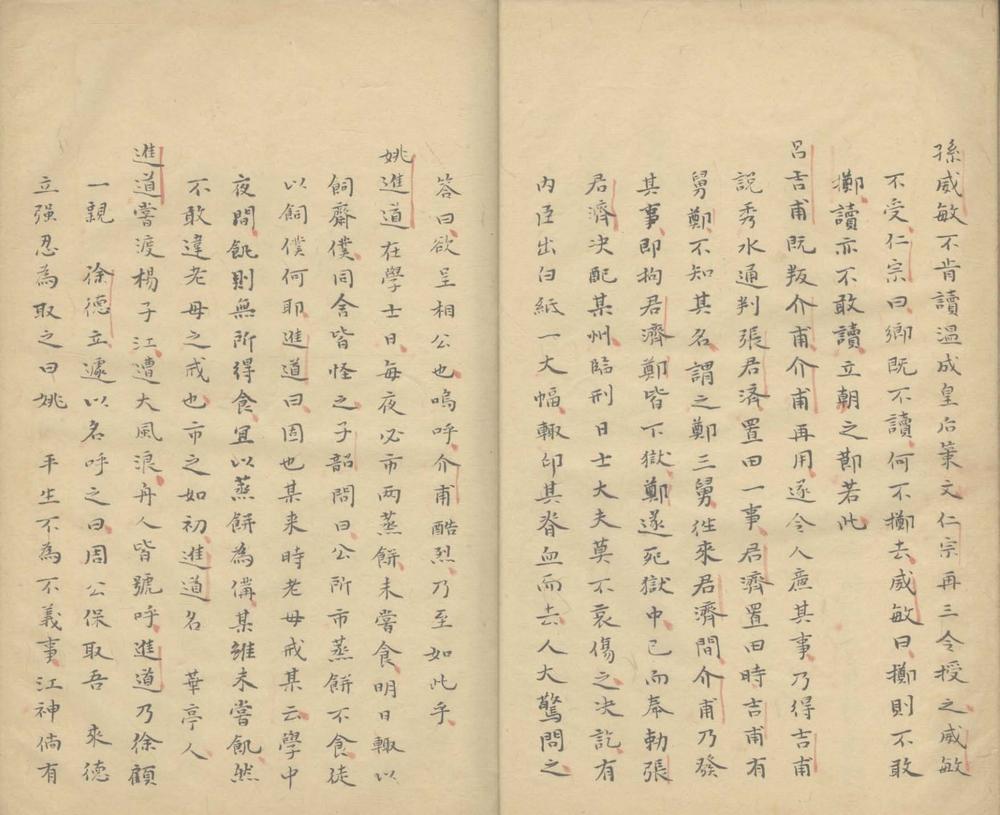 孫威敏不肯讀温成皇后策文仁宗再三令授之威敏
不受仁宗曰卿既不讀何不擲去威敏曰擲則不敢
擲讀亦不敢讀立朝之節若此
呂吉甫既叛介甫介甫再用遂令人廉其事乃得吉甫
説秀水通判張君濟置田一事君濟置田時吉甫有
舅鄭不知其名謂之鄭三舅徃來君濟間介甫乃發
其事即拘君濟鄭皆下獄鄭遂死獄中已而奉勅張
君濟决配某州臨刑日士大夫莫不哀傷之决訖有
内臣出白紙一大幅輙印其脊血而去人大驚問之
答曰欲呈相公也嗚呼介甫酷烈乃至如此乎
姚進道在學士日每夜必市兩蒸餅未嘗食明日輙以
飼齋僕同舍皆怪之子韶問曰公所市蒸餅不食徒
以飼僕何耶進道曰固也某来時老母戒某云學中
夜間飢則無所得食宜以蒸餅為備某雖未嘗飢然
不敢違老母之戒也市之如初進道名 華亭人
進道嘗渡楊子江遭大風浪舟人皆號呼進道乃徐顧
一親 徐德立遽以名呼之曰周公保取吾 來德
立强忍為取之曰姚 平生不為不義事江神倘有